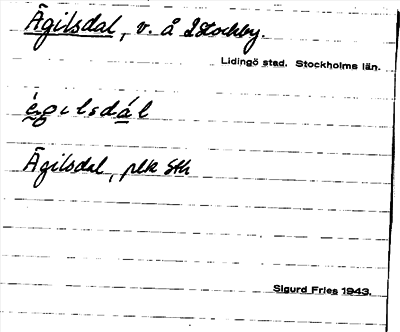 Ägilsdal, v. å Islockby.
Lidingö stad. Stockholms län.
ègilsdál
Ägilsdal, plk Sth
Sigurd Fries 1943.